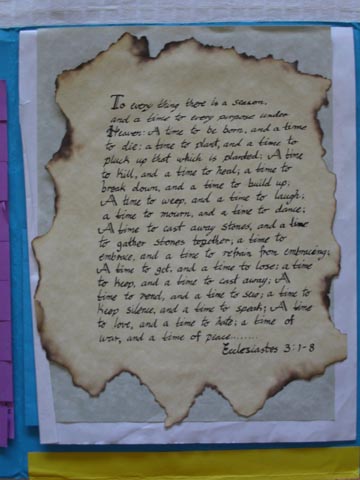 To every thing there is a season,
and a time to every purpose under
Heaven: A time to be born, and a time
to die: a time to plant, and a time to
pluck up that which is planted; A time
to kill, and a time to heal; a time to
break down, and a time to build up;
A time to weep, and a time to laugh;
a time to mourn, and a time to dance;
A time to cast away stones, and a time
to gather stones together; a time to
embrace, and a time to refrain from embracing;
A time to get, and a time to lose; a time
to keep, and a time to cast away; A
time to rend, and a time to sew; a time to
keep silence, and a time to speak; A time
to love, and a time to hate; a time of
war, and a time of peace........
Ecclesiastes 3:1-8